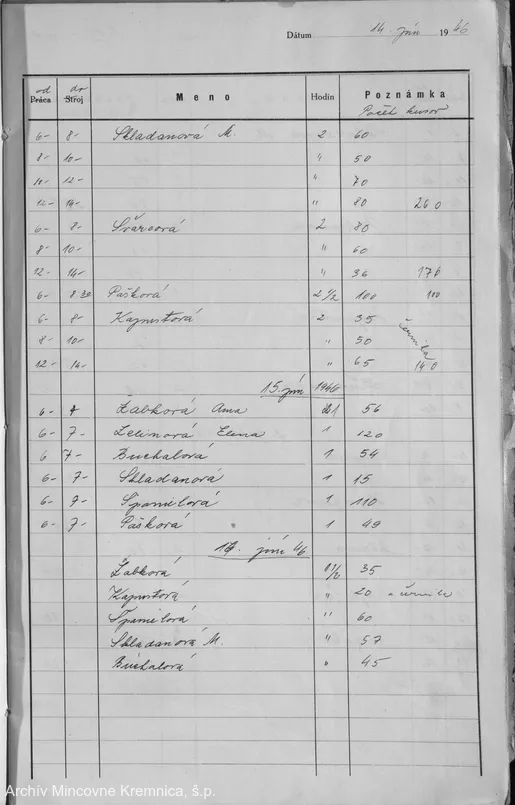 Dátum 14 jún 1946
od do
Práca Stroj Meno Hodín Poznámka
Počet kusov
6- 8- Skladanová M. 2 60
8- 10- " 50
10- 12- " 70
12- 14- " 80 260
6- 8- Švárcová 2 80
8- 10- " 60
12- 14- " 36 176
6- 8 30 Pášková 2 1/2 100 100
6- 8- Kapustová 2 35
8- 10- " 50
12- 14- " 65 140
15. jún 1946
6- 7 Žabková Anna 1 56
6- 7- Zelinová Elena 1 120
6 7- Buchalová 1 54
6- 7- Skladanová 1 15
6- 7- Španielová 1 110
6- 7- Pášková 1 49
jún 46
Žabková 1/2 35
Kapustová " 20
Španielová " 60
Skladanová M. " 57
Buchalová " 45
Archív Mincovne Kremnica, š.p.